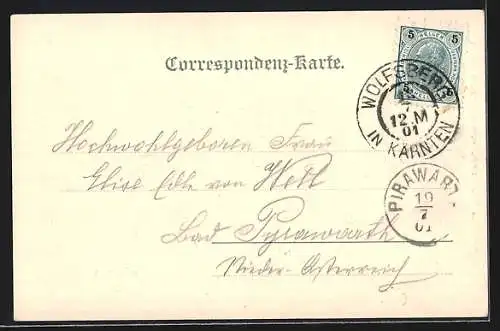 5 HELLER 5
Correspondenz-Karte.
WOLFSBERG
7
12.M
01
IN KÄRNTEN
Hochwohlgeboren Frau
Elise Edle von Well
PIRAWART
19
7
01
Bad Pyrawarth
Nieder-Österreich